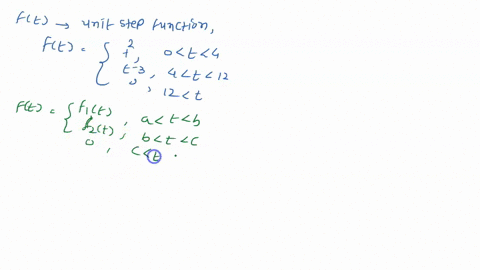 f(t) → unit step function,
f(t) = { t², 0<t<4
t-3, 4<t<12
0, 12<t
f(t) = { f₁(t), a<t<b
f₂(t), b<t<c
0, c<t .